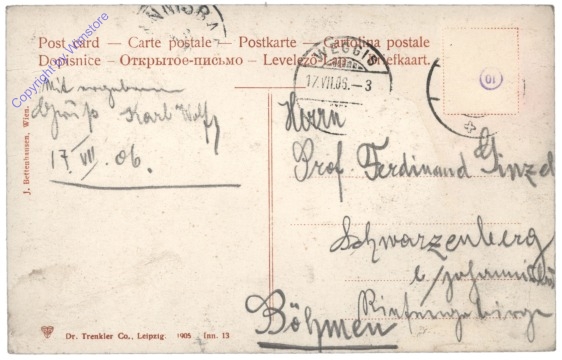 NNISBA
Post card — Carte postale — Postkarte — Cartolina postale
Dopisnice — Открытое-письмо — Levelező-Lap — Briefkaart.
Copyright by Wismstore
WEGGIS
17.VII.06.–3
10
Mit ergebenem
Gruß Karl Wolf
17 VII. 06.
Herrn
Prof. Ferdinand Ginzel
Schwarzenberg
b/Johannisbad
Riesengebirge
Böhmen
J. Bettenhausen, Wien.
Dr. Trenkler Co., Leipzig. 1905 Inn. 13